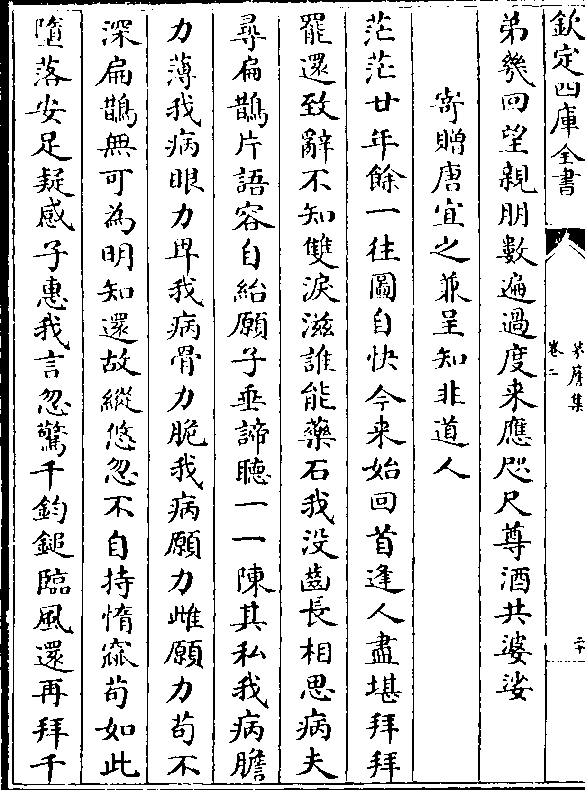 欽定四庫全書
卷二
弟幾回望親朋數遍過度来應咫尺尊酒共婆娑
寄贈唐宜之兼呈知非道人
茫茫廿年餘一往圖自快今来始回首逢人盡堪拜拜
罷還致辭不知雙淚滋誰能藥石我没齒長相思病夫
尋扁鵲片語容自紿願子垂諦聽一一陳其私我病膽
力薄我病眼力卑我病骨力脆我病願力雌願力苟不
深扁鵲無可為明知還故縱悠忽不自持惰窳苟如此
墮落安足疑感子惠我言忽驚千鈞鎚臨風還再拜千